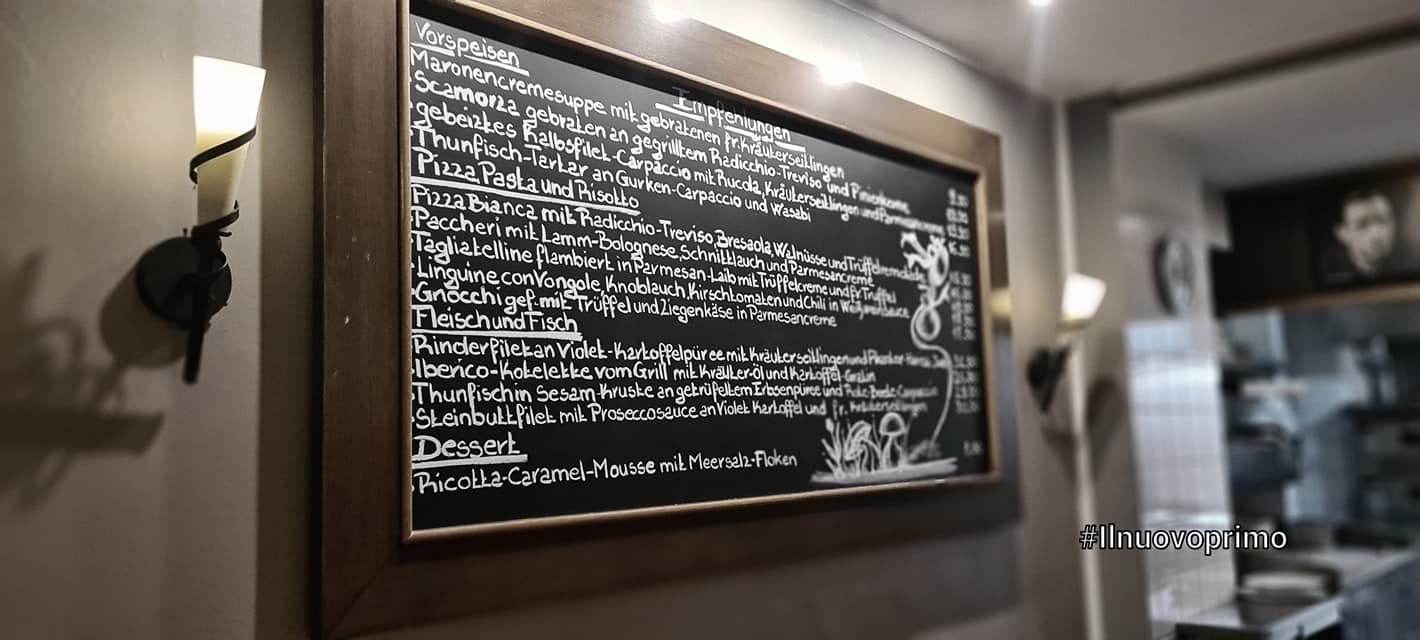 Empfehlungen
Vorspeisen
Maronencremesuppe mit gebratenen fr. Kräuterseitlingen
Scamorza gebraten an gegrilltem Radicchio-Treviso und Pinienkerne
gebeiztes Kalbsfilet-Carpaccio mit Rucola, Kräuterseitlingen und Parmesancreme
Thunfisch-Tartar an Gurken-Carpaccio und Wasabi
Pizza, Pasta und Risotto
Pizza Bianca mit Radicchio-Treviso, Bresaola, Walnüsse und Trüffelremoulade
Paccheri mit Lamm-Bolognese, Schnittlauch und Parmesancreme
Tagliatelline flambiert in Parmesan-Laib mit Trüffelcreme und Fr. Trüffel
Linguine con Vongole, Knoblauch, Kirschtomaten und Chili in Weißweinsauce
Gnocchi gef. mit Trüffel und Ziegenkäse in Parmesancreme
Fleisch und Fisch
Rinderfilet an Violet-Kartoffelpüree mit Kräuterseitlingen und
Iberico-Kotelette vom Grill mit Kräuter-Öl und Kartoffel-Gratin
Thunfisch in Sesam-Kruste an getrüfeltem Erbsenpüree und
Steinbuttfilet mit Proseccosauce an Violet Kartoffel und fr. Kräuterseitlingen
Dessert
Ricotta-Caramel-Mousse mit Meersalz-Floken
#Ilnuovoprimo